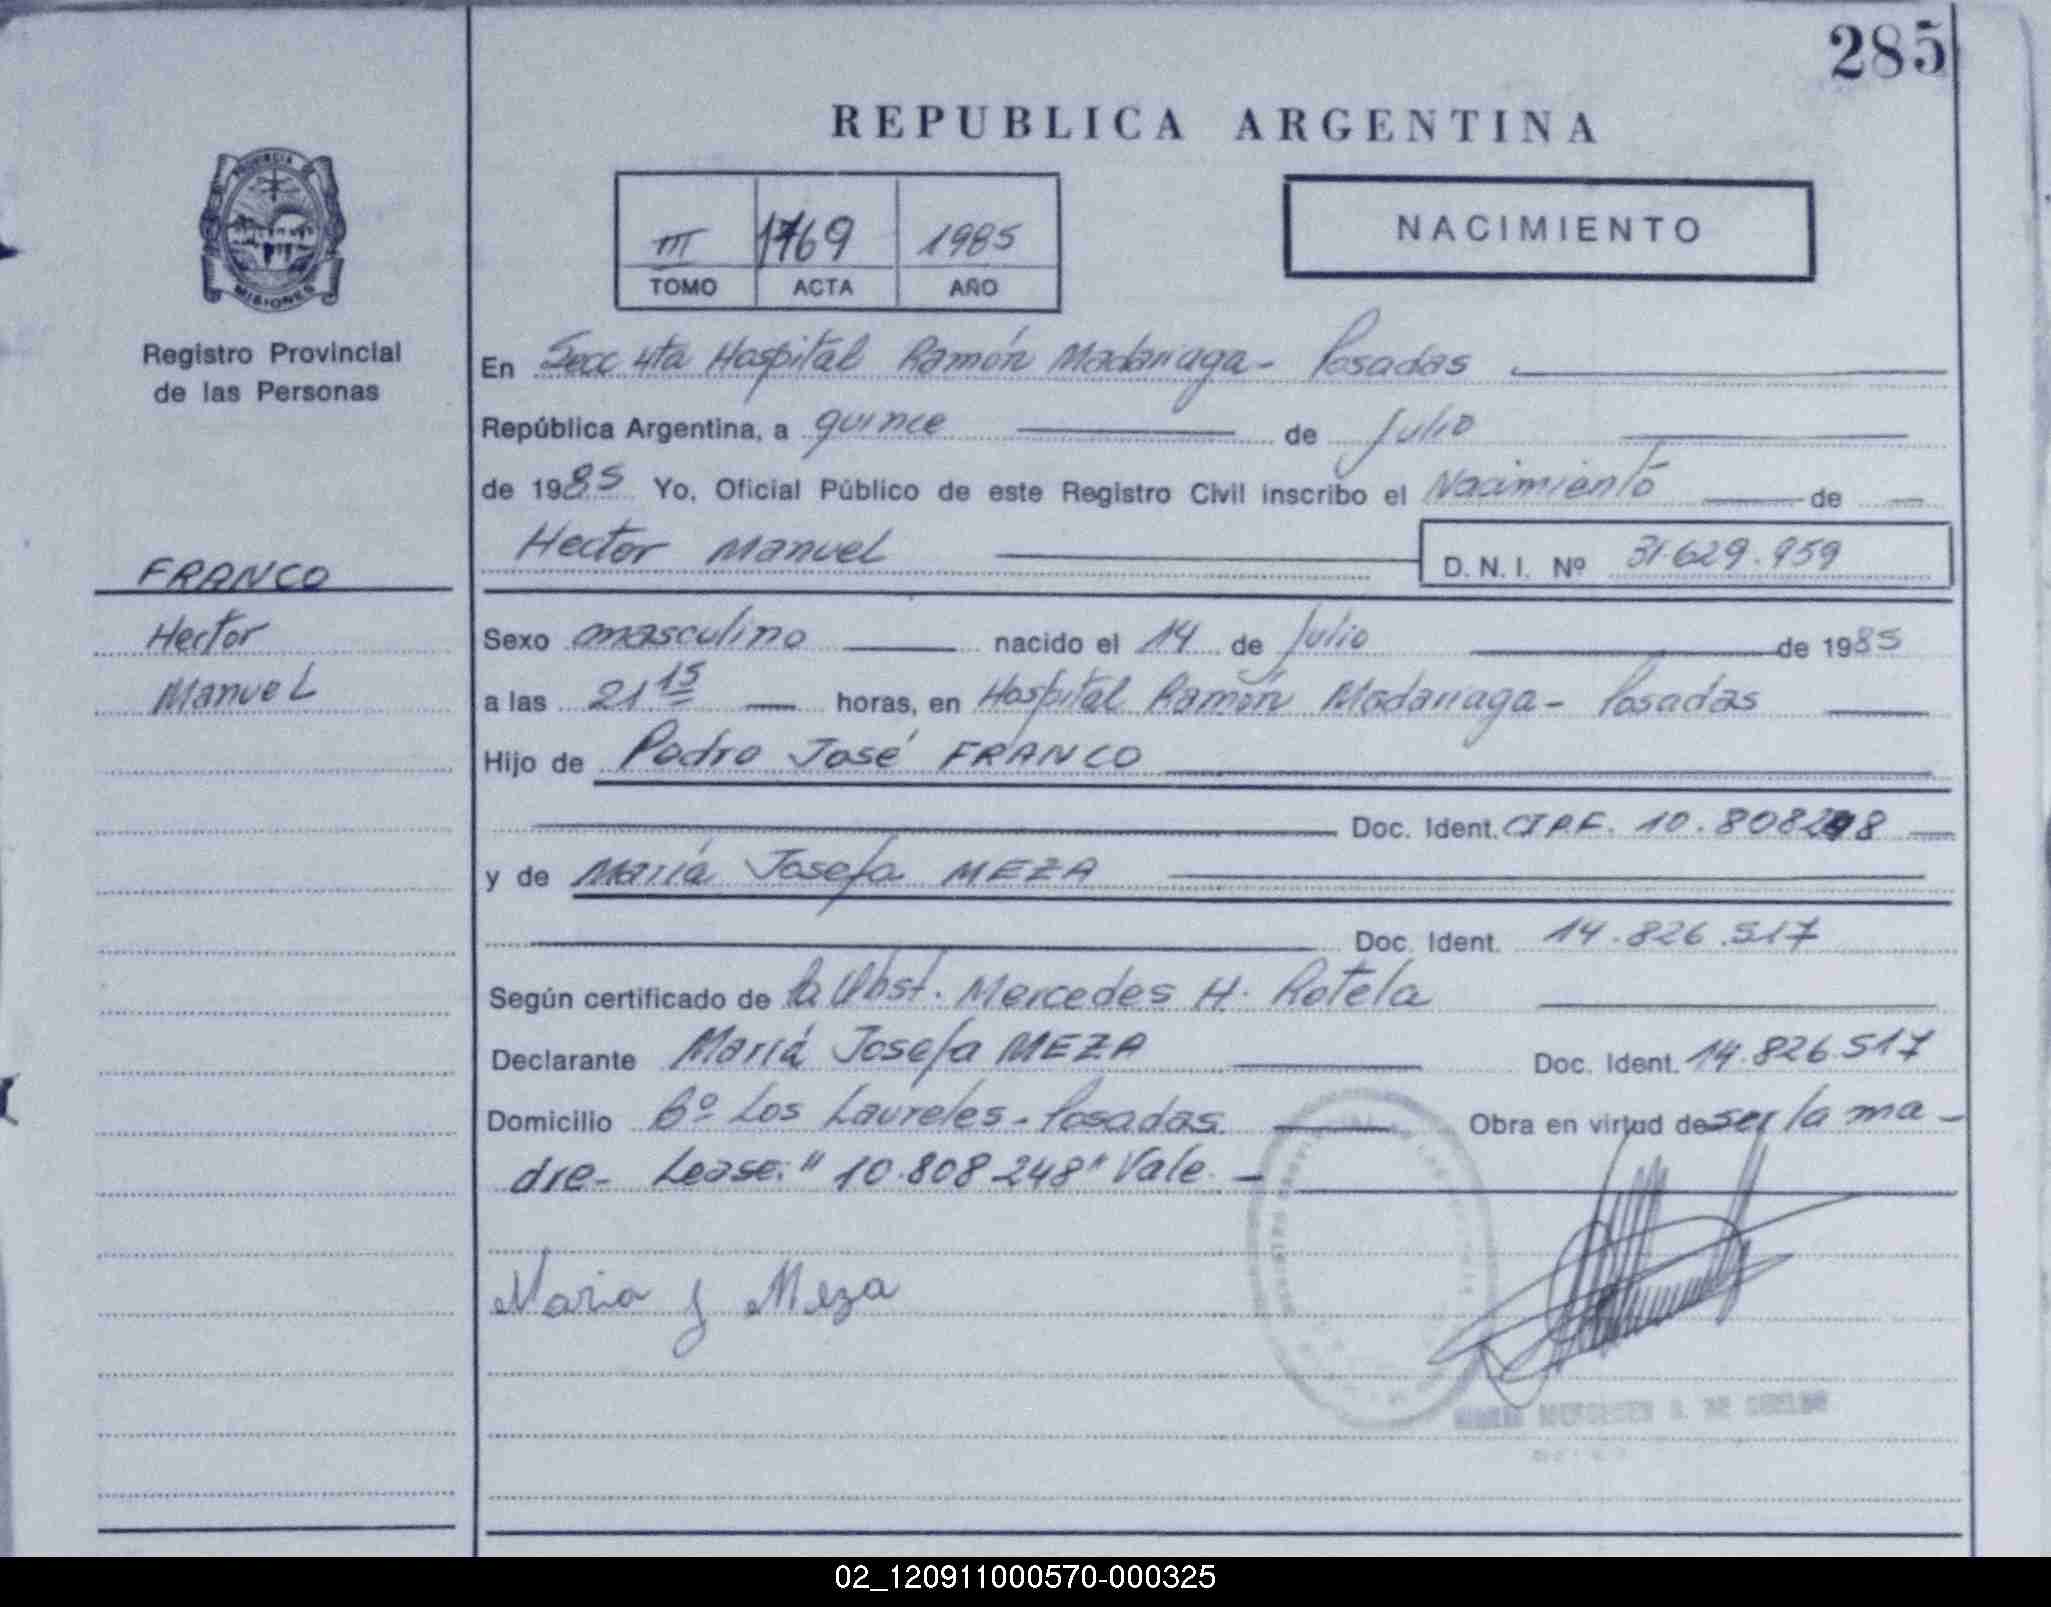 285
REPUBLICA ARGENTINA
PROVINCIA DE
MISIONES
III 1769 1985
TOMO ACTA AÑO
NACIMIENTO
Registro Provincial
de las Personas
FRANCO
Hector
Manuel
En Secc 4ta Hospital Ramón Madariaga - Posadas
República Argentina, a quince de Julio
de 1985 Yo, Oficial Público de este Registro Civil inscribo el Nacimiento de
Hector Manuel D. N. I. Nº 31.629.959
Sexo masculino nacido el 14 de Julio de 1985
a las 21 15 horas, en Hospital Ramón Madariaga - Posadas
Hijo de Pedro José FRANCO
Doc. Ident. C.I.P.F. 10.808248
y de María Josefa MEZA
Doc. Ident. 14.826.517
Según certificado de la Obst. Mercedes H. Rotela
Declarante María Josefa MEZA Doc. Ident. 14.826.517
Domicilio Bº Los Laureles - Posadas. Obra en virtud de ser la ma-
dre - Lease: "10.808248" Vale. -
Maria J Meza
02_120911000570-000325